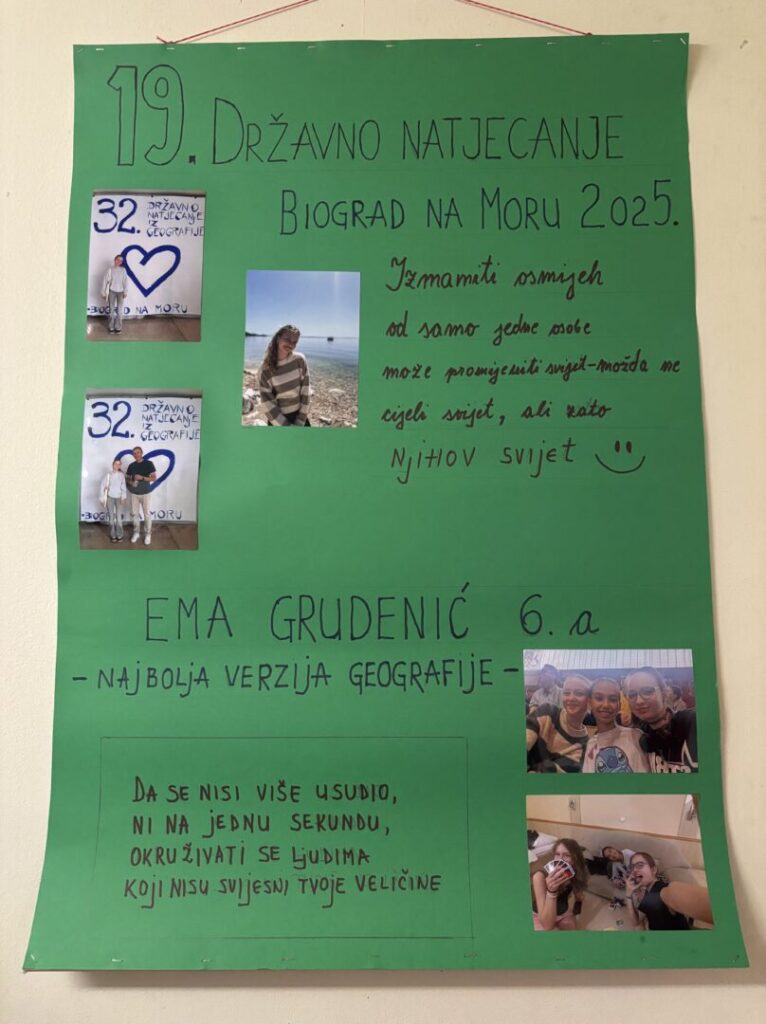 19. DRŽAVNO NATJECANJE
BIOGRAD NA MORU 2025.
32. DRŽAVNO
NATJECANJE
IZ
GEOGRAFIJE
-BIOGRAD NA MORU
Izmamiti osmijeh
od samo jedne osobe
može promijeniti svijet-možda ne
cijeli svijet, ali zato
NJIHOV SVIJET
32. DRŽAVNO
NATJECANJE
IZ
GEOGRAFIJE
-BIOGRAD NA MORU
EMA GRUDENIĆ 6. a
- NAJBOLJA VERZIJA GEOGRAFIJE -
DA SE NISI VIŠE USUDIO,
NI NA JEDNU SEKUNDU,
OKRUŽIVATI SE LJUDIMA
KOJI NISU SVIJESNI TVOJE VELIČINE